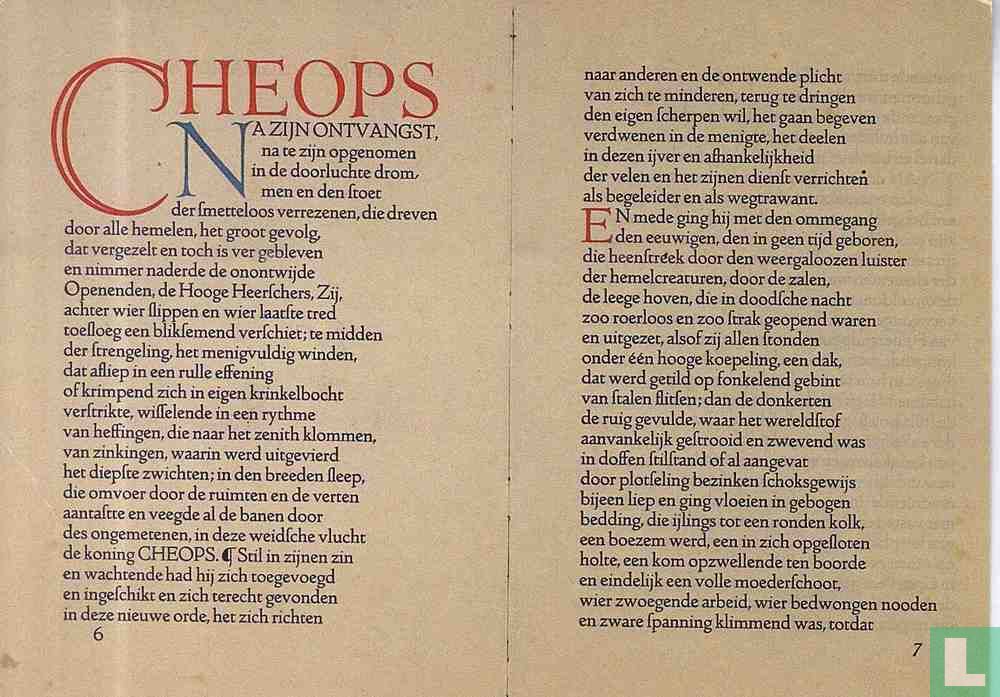 CHEOPS
NA ZIJN ONTVANGST,
na te zijn opgenomen
in de doorluchte drom-
men en den ſtoet
der ſmetteloos verrezenen, die dreven
door alle hemelen, het groot gevolg,
dat vergezelt en toch is ver gebleven
en nimmer naderde de onontwijde
Openenden, de Hooge Heerſchers, Zij,
achter wier ſlippen en wier laatſte tred
toeſloeg een blikſemend verſchiet; te midden
der ſtrengeling, het menigvuldig winden,
dat afliep in een rulle effening
of krimpend zich in eigen krinkelbocht
verſtrikte, wiſſelende in een rythme
van heffingen, die naar het zenith klommen,
van zinkingen, waarin werd uitgevierd
het diepſte zwichten; in den breeden ſleep,
die omvoer door de ruimten en de verten
aantaſtte en veegde al de banen door
des ongemetenen, in deze weidſche vlucht
de koning CHEOPS. ¶ Stil in zijnen zin
en wachtende had hij zich toegevoegd
en ingeſchikt en zich terecht gevonden
in deze nieuwe orde, het zich richten
6
naar anderen en de ontwende plicht
van zich te minderen, terug te dringen
den eigen ſcherpen wil, het gaan begeven
verdwenen in de menigte, het deelen
in dezen ijver en afhankelijkheid
der velen en het zijnen dienſt verrichten
als begeleider en als wegtrawant.
EN mede ging hij met den ommegang
den eeuwigen, den in geen tijd geboren,
die heenſtreek door den weergaloozen luister
der hemelcreaturen, door de zalen,
de leege hoven, die in doodſche nacht
zoo roerloos en zoo ſtrak geopend waren
en uitgezet, alsof zij allen ſtonden
onder één hooge koepeling, een dak,
dat werd getild op fonkelend gebint
van ſtalen flitſen; dan de donkerten
de ruig gevulde, waar het wereldſtof
aanvankelijk geſtrooid en zwevend was
in doffen ſtilſtand of al aangevat
door plotſeling bezinken ſchoksgewijs
bijeen liep en ging vloeien in gebogen
bedding, die ijlings tot een ronden kolk,
een boezem werd, een in zich opgeſloten
holte, een kom opzwellende ten boorde
en eindelijk een volle moederſchoot,
wier zwoegende arbeid, wier bedwongen nooden
en zware ſpanning klimmend was, totdat
7
L